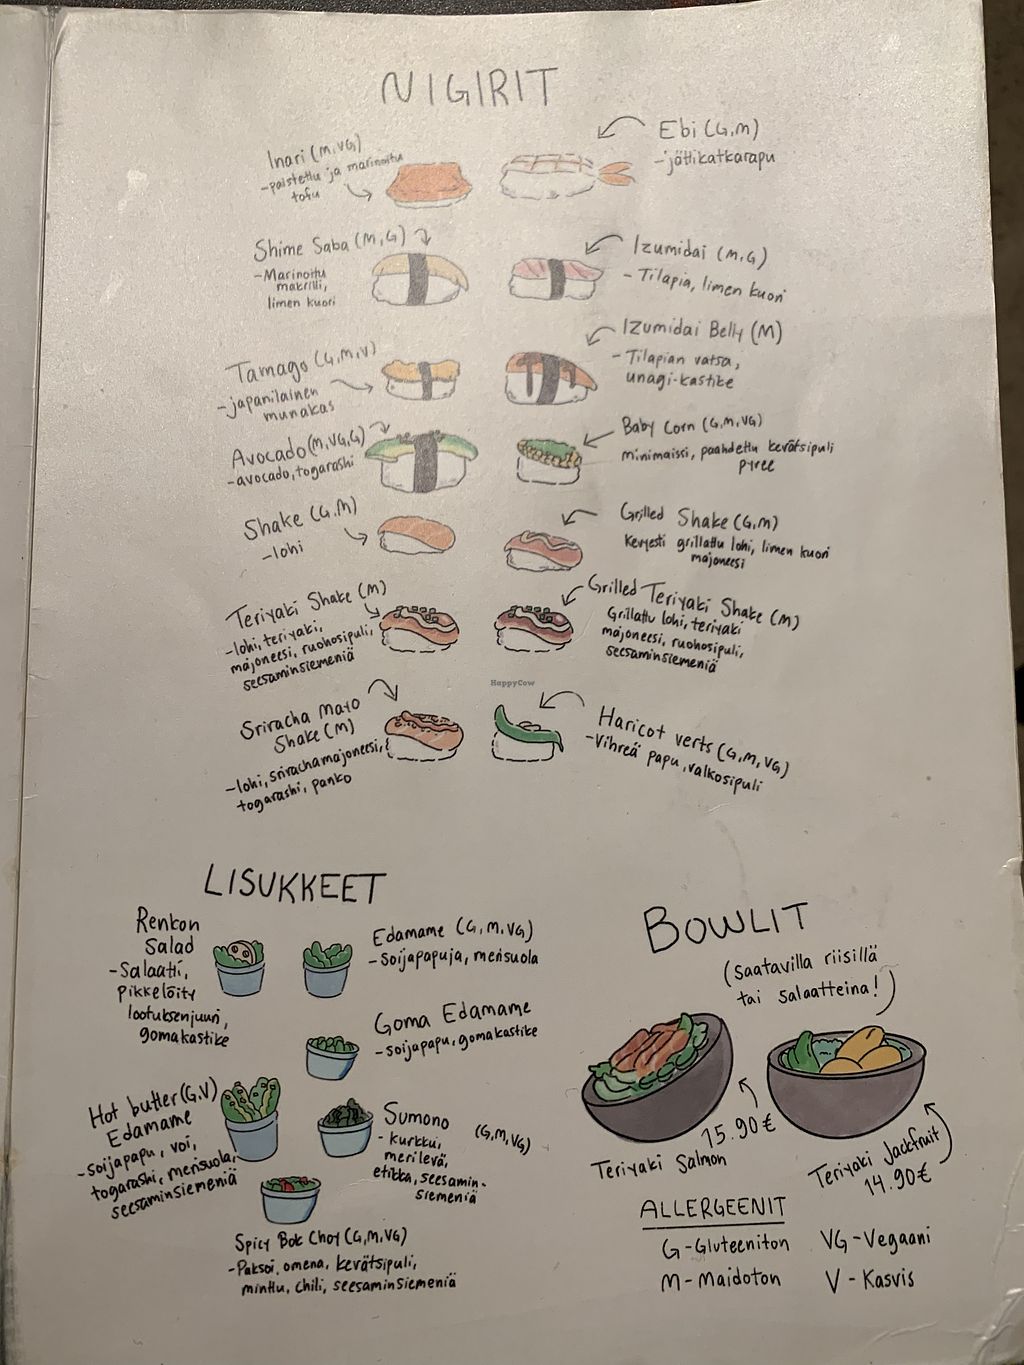 NIGIRIT
Inari (M,VG)
-paistettu ja marinoitu
tofu
Ebi (G,M)
-jättikatkarapu
Shime Saba (M,G)
-Marinoitu
makrilli,
limen kuori
Izumidai (M,G)
- Tilapia, limen kuori
Tamago (G,M,V)
-japanilainen
munakas
Izumidai Belly (M)
- Tilapian vatsa,
unagi-kastike
Avocado (M,VG,G)
-avocado, togarashi
Baby Corn (G,M,VG)
minimaissi, paahdettu kevätsipuli
pyree
Shake (G,M)
-lohi
Grilled Shake (G,M)
Kevyesti grillattu lohi, limen kuori
majoneesi
Teriyaki Shake (M)
-lohi, teriyaki,
majoneesi, ruohosipuli,
seesaminsiemeniä
Grilled Teriyaki Shake (M)
Grillattu lohi, teriyaki
majoneesi, ruohosipuli,
seesaminsiemeniä
HappyCow
Sriracha Mayo
Shake (M)
-lohi, srirachamajoneesi,
togarashi, panko
Haricot verts (G,M,VG)
-Vihreä papu, valkosipuli
LISUKKEET
Renkon
Salad
-Salaatti,
pikkelöity
lootuksenjuuri,
gomakastike
Edamame (G,M,VG)
-Soijapapuja, merisuola
Goma Edamame
-soijapapu, gomakastike
Hot butter (G,V)
Edamame
-soijapapu, voi,
togarashi, merisuola,
seesaminsiemeniä
Sumono (G,M,VG)
- Kurkku,
merilevä,
etikka, seesamin-
siemeniä
Spicy Bok Choy (G,M,VG)
-Paksoi, omena, kevätsipuli,
minttu, chili, seesaminsiemeniä
BOWLIT
(Saatavilla riisillä
tai salaatteina!)
15.90€
Teriyaki Salmon
Teriyaki Jackfruit
14.90€
ALLERGEENIT
G-Gluteeniton
VG-Vegaani
M-Maidoton
V-Kasvis